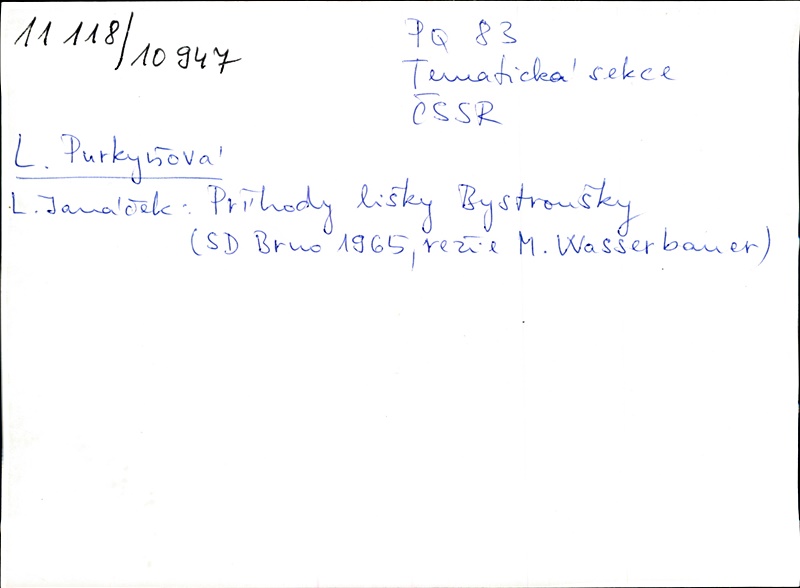 11 118/10 947
PQ 83
Tematická sekce
ČSSR
L. Purkyňová
L. Janáček: Príhody lišky Bystroušky
(SD Brno 1965, režie M. Wasserbauer)